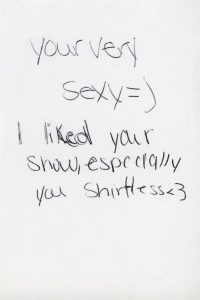 your very
sexy=)
I liked your
show, especially
you shirtless<3